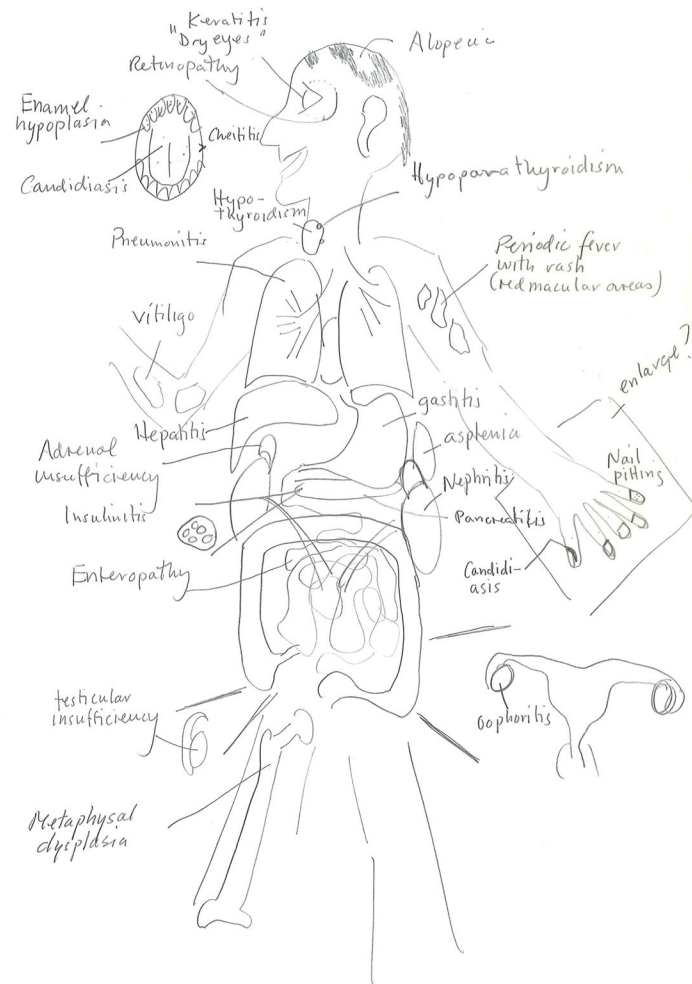 Keratitis
"Dry eyes"
Retinopathy
Alopecia
Enamel-
hypoplasia
Cheilitis
Candidiasis
Hypo-
thyroidism
Hypoparathyroidism
Pneumonitis
Periodic fever
with rash
(red macular areas)
Vitiligo
enlarge?
Hepatitis
gastritis
asplenia
Adrenal
insufficiency
Nail
pitting
Nephritis
Insulinitis
Pancreatitis
Enteropathy
Candidi-
asis
testicular
insufficiency
Oophoritis
Metaphysal
dysplasia